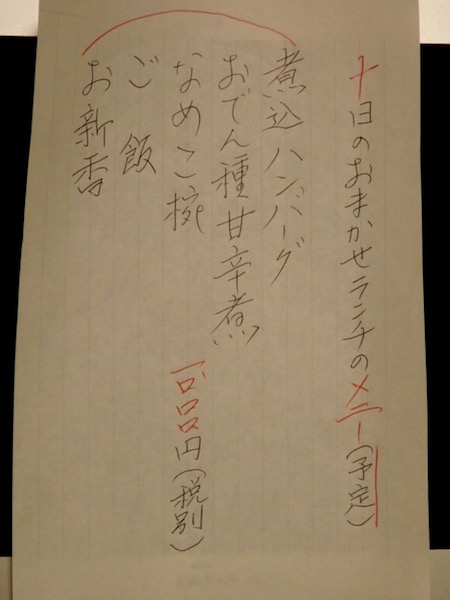 十日のおまかせランチのメニュー(予定)
煮込ハンバーグ
おでん種甘辛煮
なめこ椀
一、〇〇〇円(税別)
ご飯
お新香